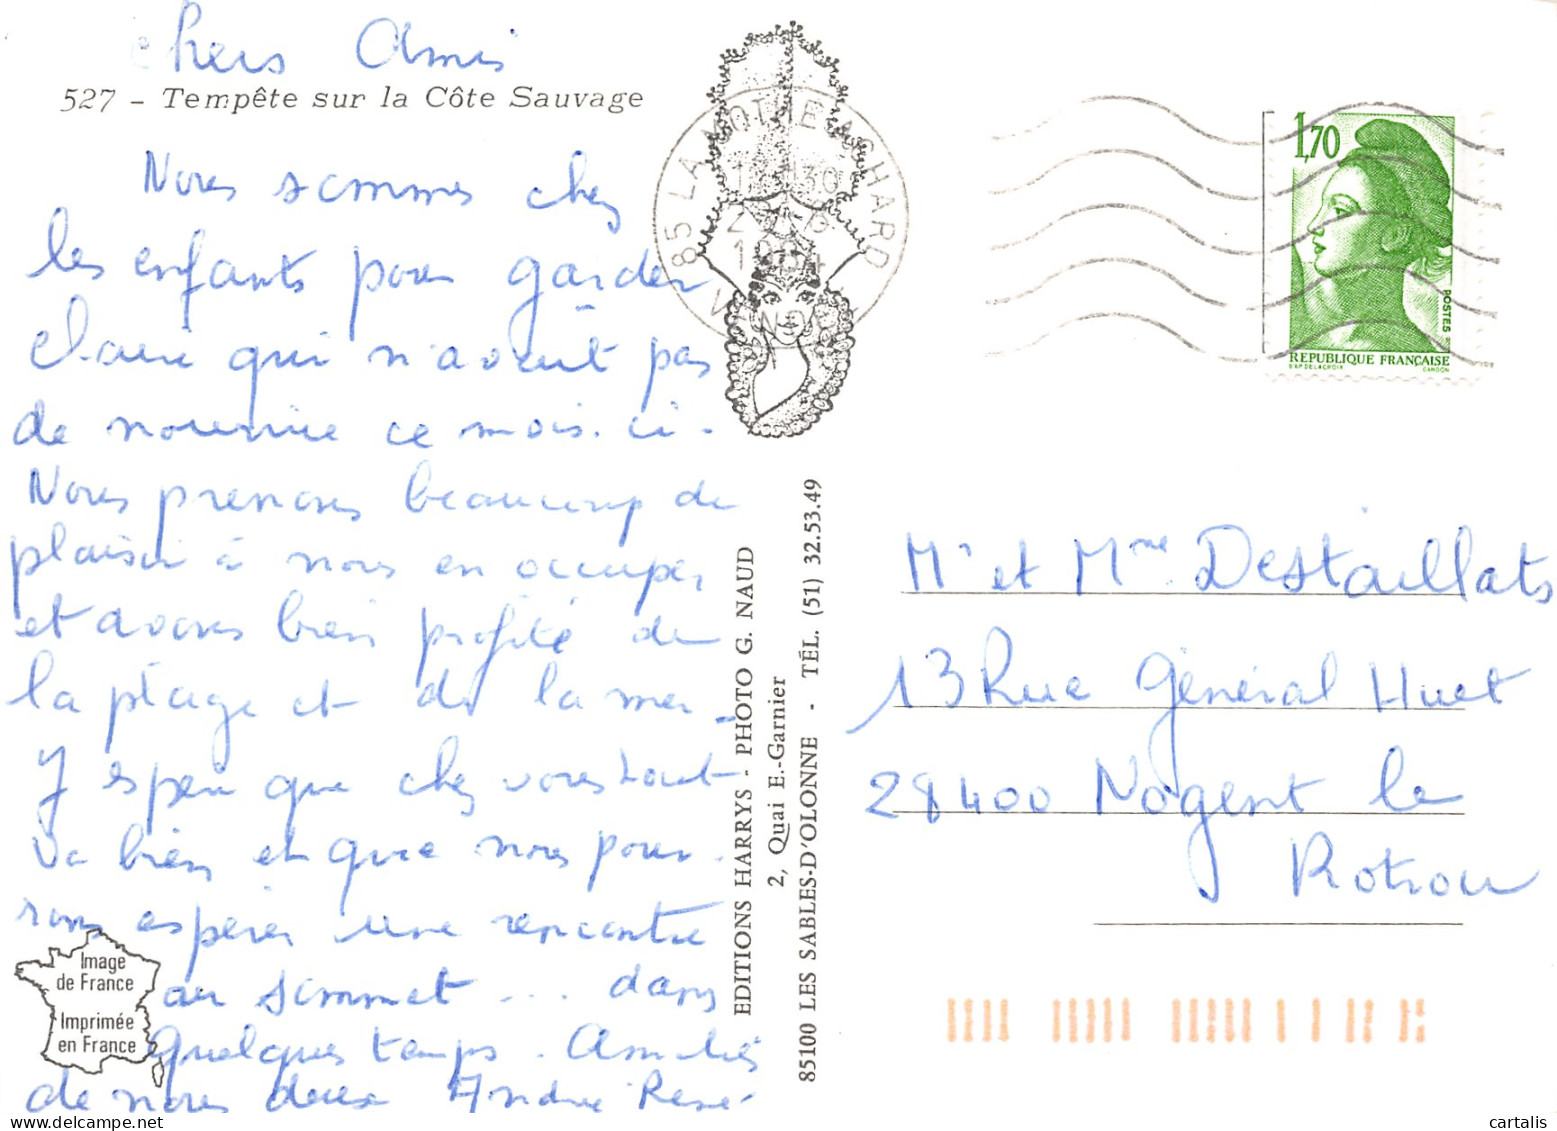 Chers Amis
527 - Tempête sur la Côte Sauvage
Nous sommes chez
les enfants pour garder
Claire qui n'avait pas
de nourrice ce mois-ci.
Nous prenons beaucoup de
plaisir à nous en occuper
et avons bien profité de
la plage et de la mer.
J'espère que chez vous tout
va bien et que nous pour-
rons espérer une rencontre
au sommet ... dans
quelques temps. Amitiés
de nous deux Andrée René
Image
de France
Imprimée
en France
EDITIONS HARRYS - PHOTO G. NAUD
2, Quai E.-Garnier
85100 LES SABLES-D'OLONNE - TÉL. (51) 32.53.49
85 LA MOTHE ACHARD
VENDEE
1,70
POSTES
REPUBLIQUE FRANÇAISE
D'AP. DELACROIX GANDON
Mr et Mme Destaillats
13 Rue Général Huet
28400 Nogent le
Rotrou
cartalis